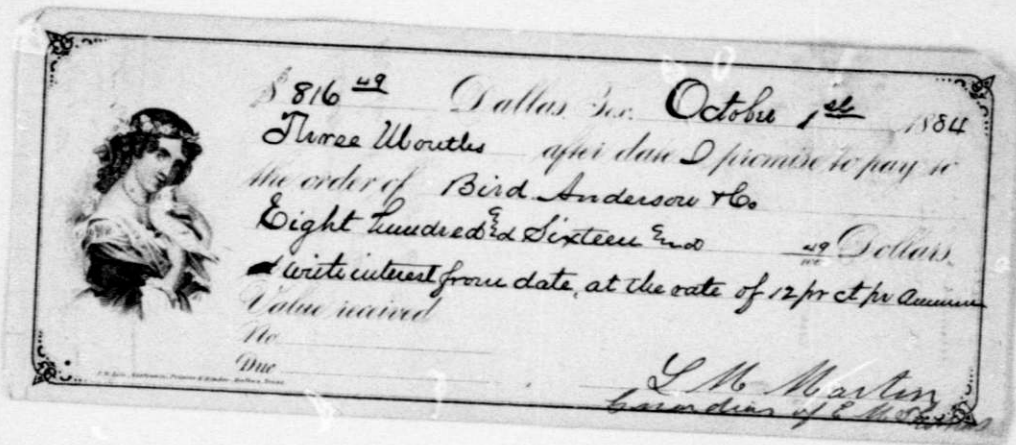 $ 816 49 Dallas, Tex. October 1st 1884
Three Months after date I promise to pay to
the order of Bird Anderson & Co
Eight hundred & Sixteen and 49/100 Dollars,
with interest from date, at the rate of 12 pr ct pr Annum
Value received
No
Due
L M Martin
Guardian of E M